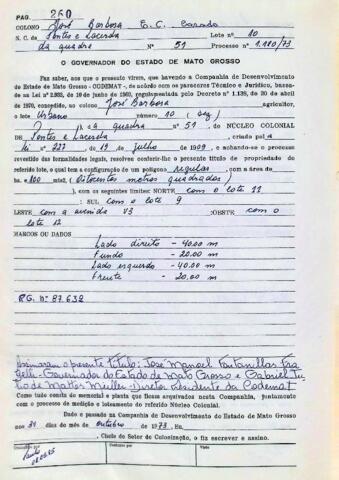 PAG. 260
COLONO José Barbosa E.C. Casado
N. C. de Pontes e Lacerda Lote n.º 10
da quadra N.º 51 Processo n.º 1.180/73
O GOVERNADOR DO ESTADO DE MATO GROSSO
Faz saber, aos que o presente virem, que havendo a Companhia de Desenvolvimento
do Estado de Mato Grosso - CODEMAT -, de acôrdo com os pareceres Técnico e Jurídico, basea-
do na Lei n.º 2.925, de 10 de junho de 1969, regulamentada pelo Decreto n.º 1.138, de 30 de abril
de 1970, concedido, ao colono José Barbosa agricultor,
o lote Urbano número 10 (dez)
da quadra n.º 51 do NÚCLEO COLONIAL
DE Pontes e Lacerda, criado pela
lei n.º 227, de 19 de julho de 1909, e achando-se o processo
revestido das formalidades legais, resolveu conferir-lhe o presente título de propriedade do
referido lote, o qual tem a configuração de um polígono regular com a área de
ha. 800 mts2, (Oitocentos metros quadrados)
), com os seguintes limites: NORTE com o lote 11
: SUL com o lote 9
LESTE com a avenida V3 :OESTE com o
lote 12
MARCOS OU DADOS
Lado direito - 40.00 m
Fundo - 20.00 m
Lado esquerdo - 40.00 m
Frente - 20.00 m
R.G. N.º 87.632
Assinaram o presente título: José Manoel Fontanillas Fra
gelli - Governador do Estado de Mato Grosso e Gabriel Jú-
lio de Mattos Müller - Diretor Presidente da Codemat
Como tudo consta do memorial e planta que ficam arquivados nesta Companhia, juntamente
com o processo de medição e loteamento do referido Núcleo Colonial.
Dado e passado na Companhia de Desenvolvimento do Estado de Mato Grosso
aos 31 dias do mês de outubro de 1973. Eu,
, Chefe do Setor de Colonização, o fiz escrever e assino.
Conferente
Visto